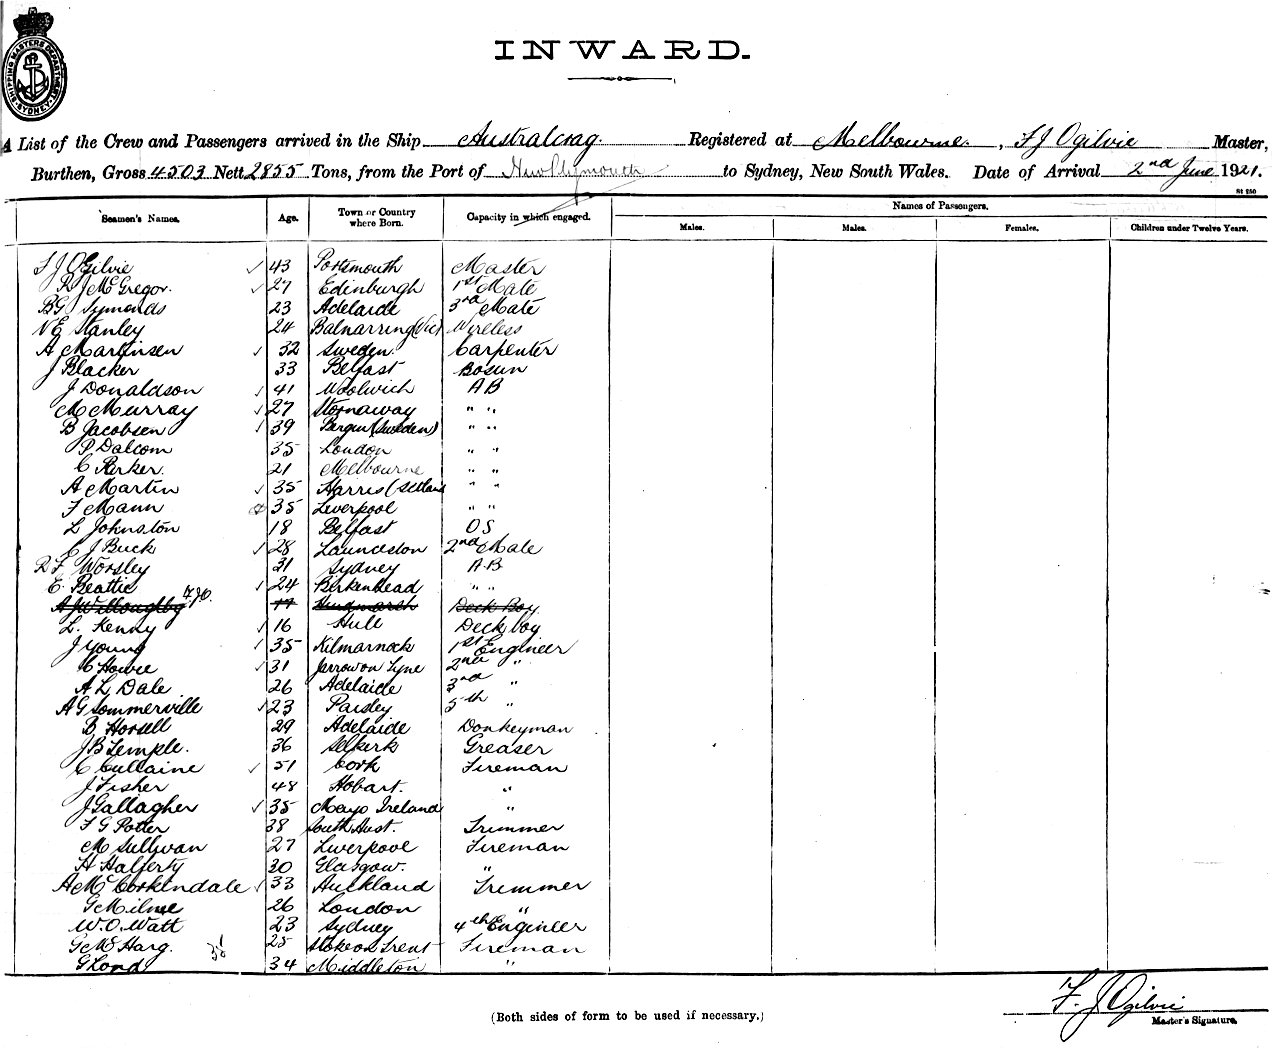 SHIPPING MASTERS DEPARTMENT SYDNEY
INWARD.
A List of the Crew and Passengers arrived in the Ship Australcrag. Registered at Melbourne. , F J Ogilvie Master,
Burthen, Gross 4503 Nett 2855 Tons, from the Port of New Plymouth to Sydney, New South Wales. Date of Arrival 2nd June 1921.
St 250
Seamen's Names. Age. Town or Country where Born. Capacity in which engaged. Names of Passengers.
Males. Males. Females. Children under Twelve Years.
F J Ogilvie ✓ 43 Portsmouth Master
R J McGregor. ✓ 27 Edinburgh 1st Mate
B G Symonds 23 Adelaide 3rd Mate
N E Stanley 24 Balnarring (Vic) Wireless
A Martinsen ✓ 32 Sweden. Carpenter
J Blacker 33 Belfast Bosun
J Donaldson ✓ 41 Woolwich A B
M Murray ✓ 27 Stornaway " "
B Jacobsen ✓ 39 Bergen (Sweden) " "
P Dalcom 35 London " "
C Parker. 21 Melbourne " "
A Martin ✓ 35 Harris (Scotland " "
F Mann 35 Liverpool " "
L Johnston 18 Belfast O S
E J Buck ✓ 28 Launceston 2nd Mate
R F Worsley 31 Sydney A B
E. Beattie ✓ 24 Birkenhead " "
A J Willoughby 17 Hindmarsh Deck Boy
L. Kenny ✓ 16 Hull Deck boy
J Young ✓ 35 Kilmarnock 1st Engineer
C Howie ✓ 31 Jarrow on Tyne 2nd "
A L Dale 26 Adelaide 3rd "
A G Sommerville ✓ 23 Paisley 5th "
B, Horsell 29 Adelaide Donkeyman
J B Temple. 36 Selkirk Greaser
C Cullaine ✓ 51 Cork Fireman
J Fisher 48 Hobart. "
J Gallagher ✓ 35 Mayo Ireland "
F G Potter 38 South Aust. Trimmer
M Sullivan 27 Liverpool Fireman
H Halferty 30 Glasgow. "
A McCorkindale ✓ 33 Auckland Trimmer
G Milne 26 London "
W. O. Watt 23 Sydney 4th Engineer
G McHarg. 25 Stoke on Trent Fireman
G Lord 34 Middleton "
F. J Ogilvie
(Both sides of form to be used if necessary.) Master's Signature.